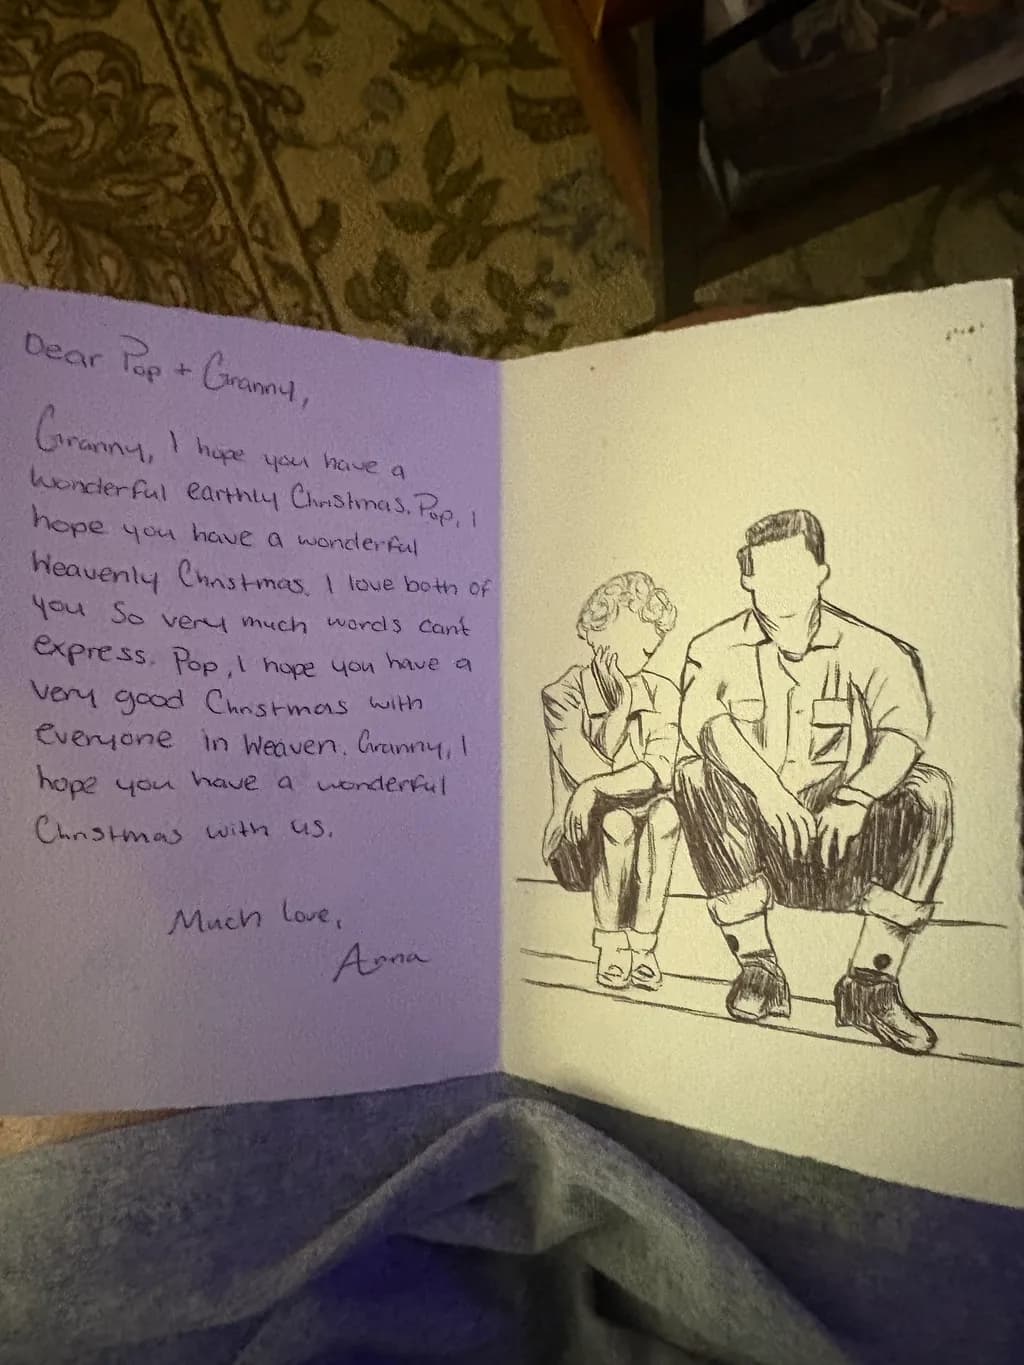 Dear Pop + Granny,
Granny, I hope you have a
wonderful earthly Christmas. Pop, I
hope you have a wonderful
Heavenly Christmas. I love both of
you so very much words cant
express. Pop, I hope you have a
very good Christmas with
everyone in Heaven. Granny, I
hope you have a wonderful
Christmas with us.
Much love,
Anna